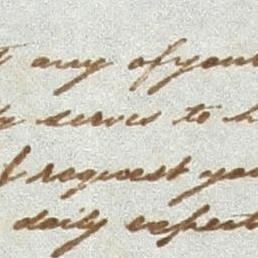 any of your
serves to
request you
daily expect